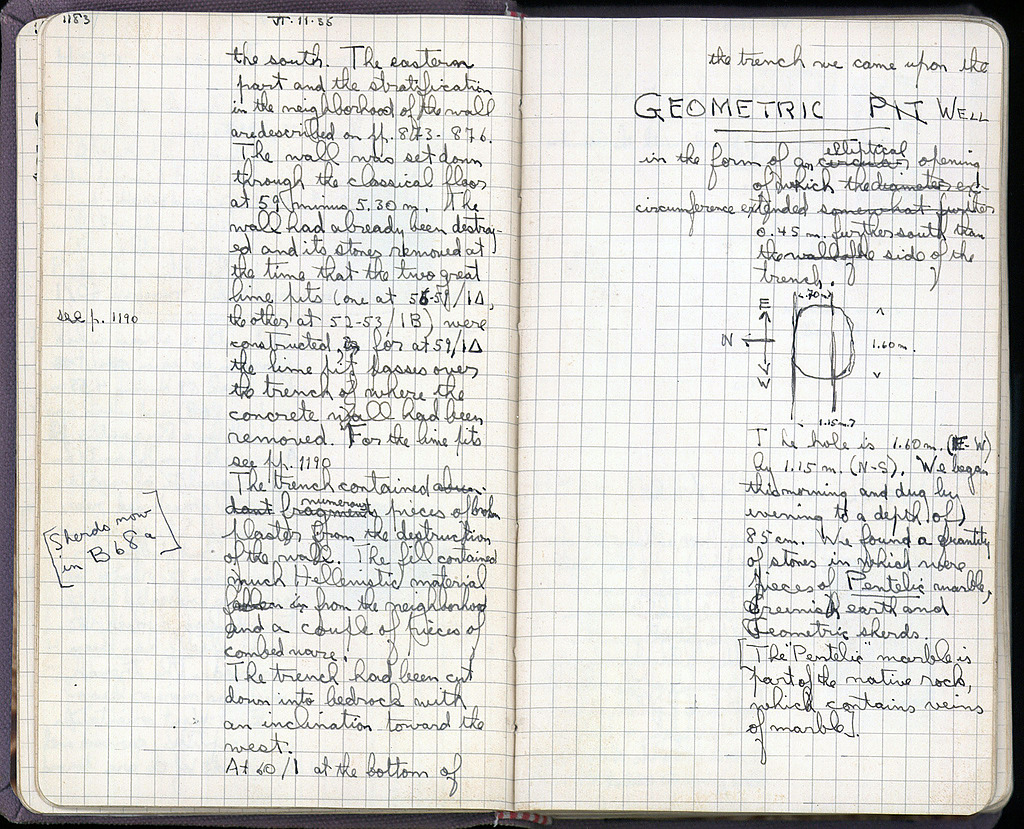 1183
VI·11·36
the south. The eastern
part and the stratification
in the neighborhood of the wall
are described on pp. 873-876.
The wall was set down
through the classical floor
at 59/ minus 5.30 m. The
wall had already been destroy-
ed and its stones removed at
the time that the two great
lime pits (one at 56-59/1Δ,
the other at 52-53/1B) were
see p. 1190
constructed, for at 59/1Δ
the lime pit passes over
the trench of where the
concrete wall had been
removed. For the lime pits
see pp. 1190
The trench contained abun-
dant fragments numerous pieces of broken
plaster from the destruction
of the wall. The fill contained
much Hellenistic material
fallen in from the neighborhood
and a couple of pieces of
combed ware.
[Sherds now
in B 68 a]
The trench had been cut
down into bedrock with
an inclination toward the
west.
At 60/1 at the bottom of
the trench we came upon the
GEOMETRIC PIT WELL
in the form of an circular elliptical opening
of which the diameter
circumference extended somewhat further
0.45 m. further south than
the wall of the side of the
trench.
.70 m
E
N
W
1.60 m.
1.15 m.?
The hole is 1.60 m. (E-W)
by 1.15 m. (N-S). We began
this morning and dug by
evening to a depth of
85 cm. We found a quantity
of stones in which were
pieces of Pentelic marble,
greenish earth and
Geometric sherds.
[The "Pentelic" marble is
part of the native rock,
which contains veins
of marble].